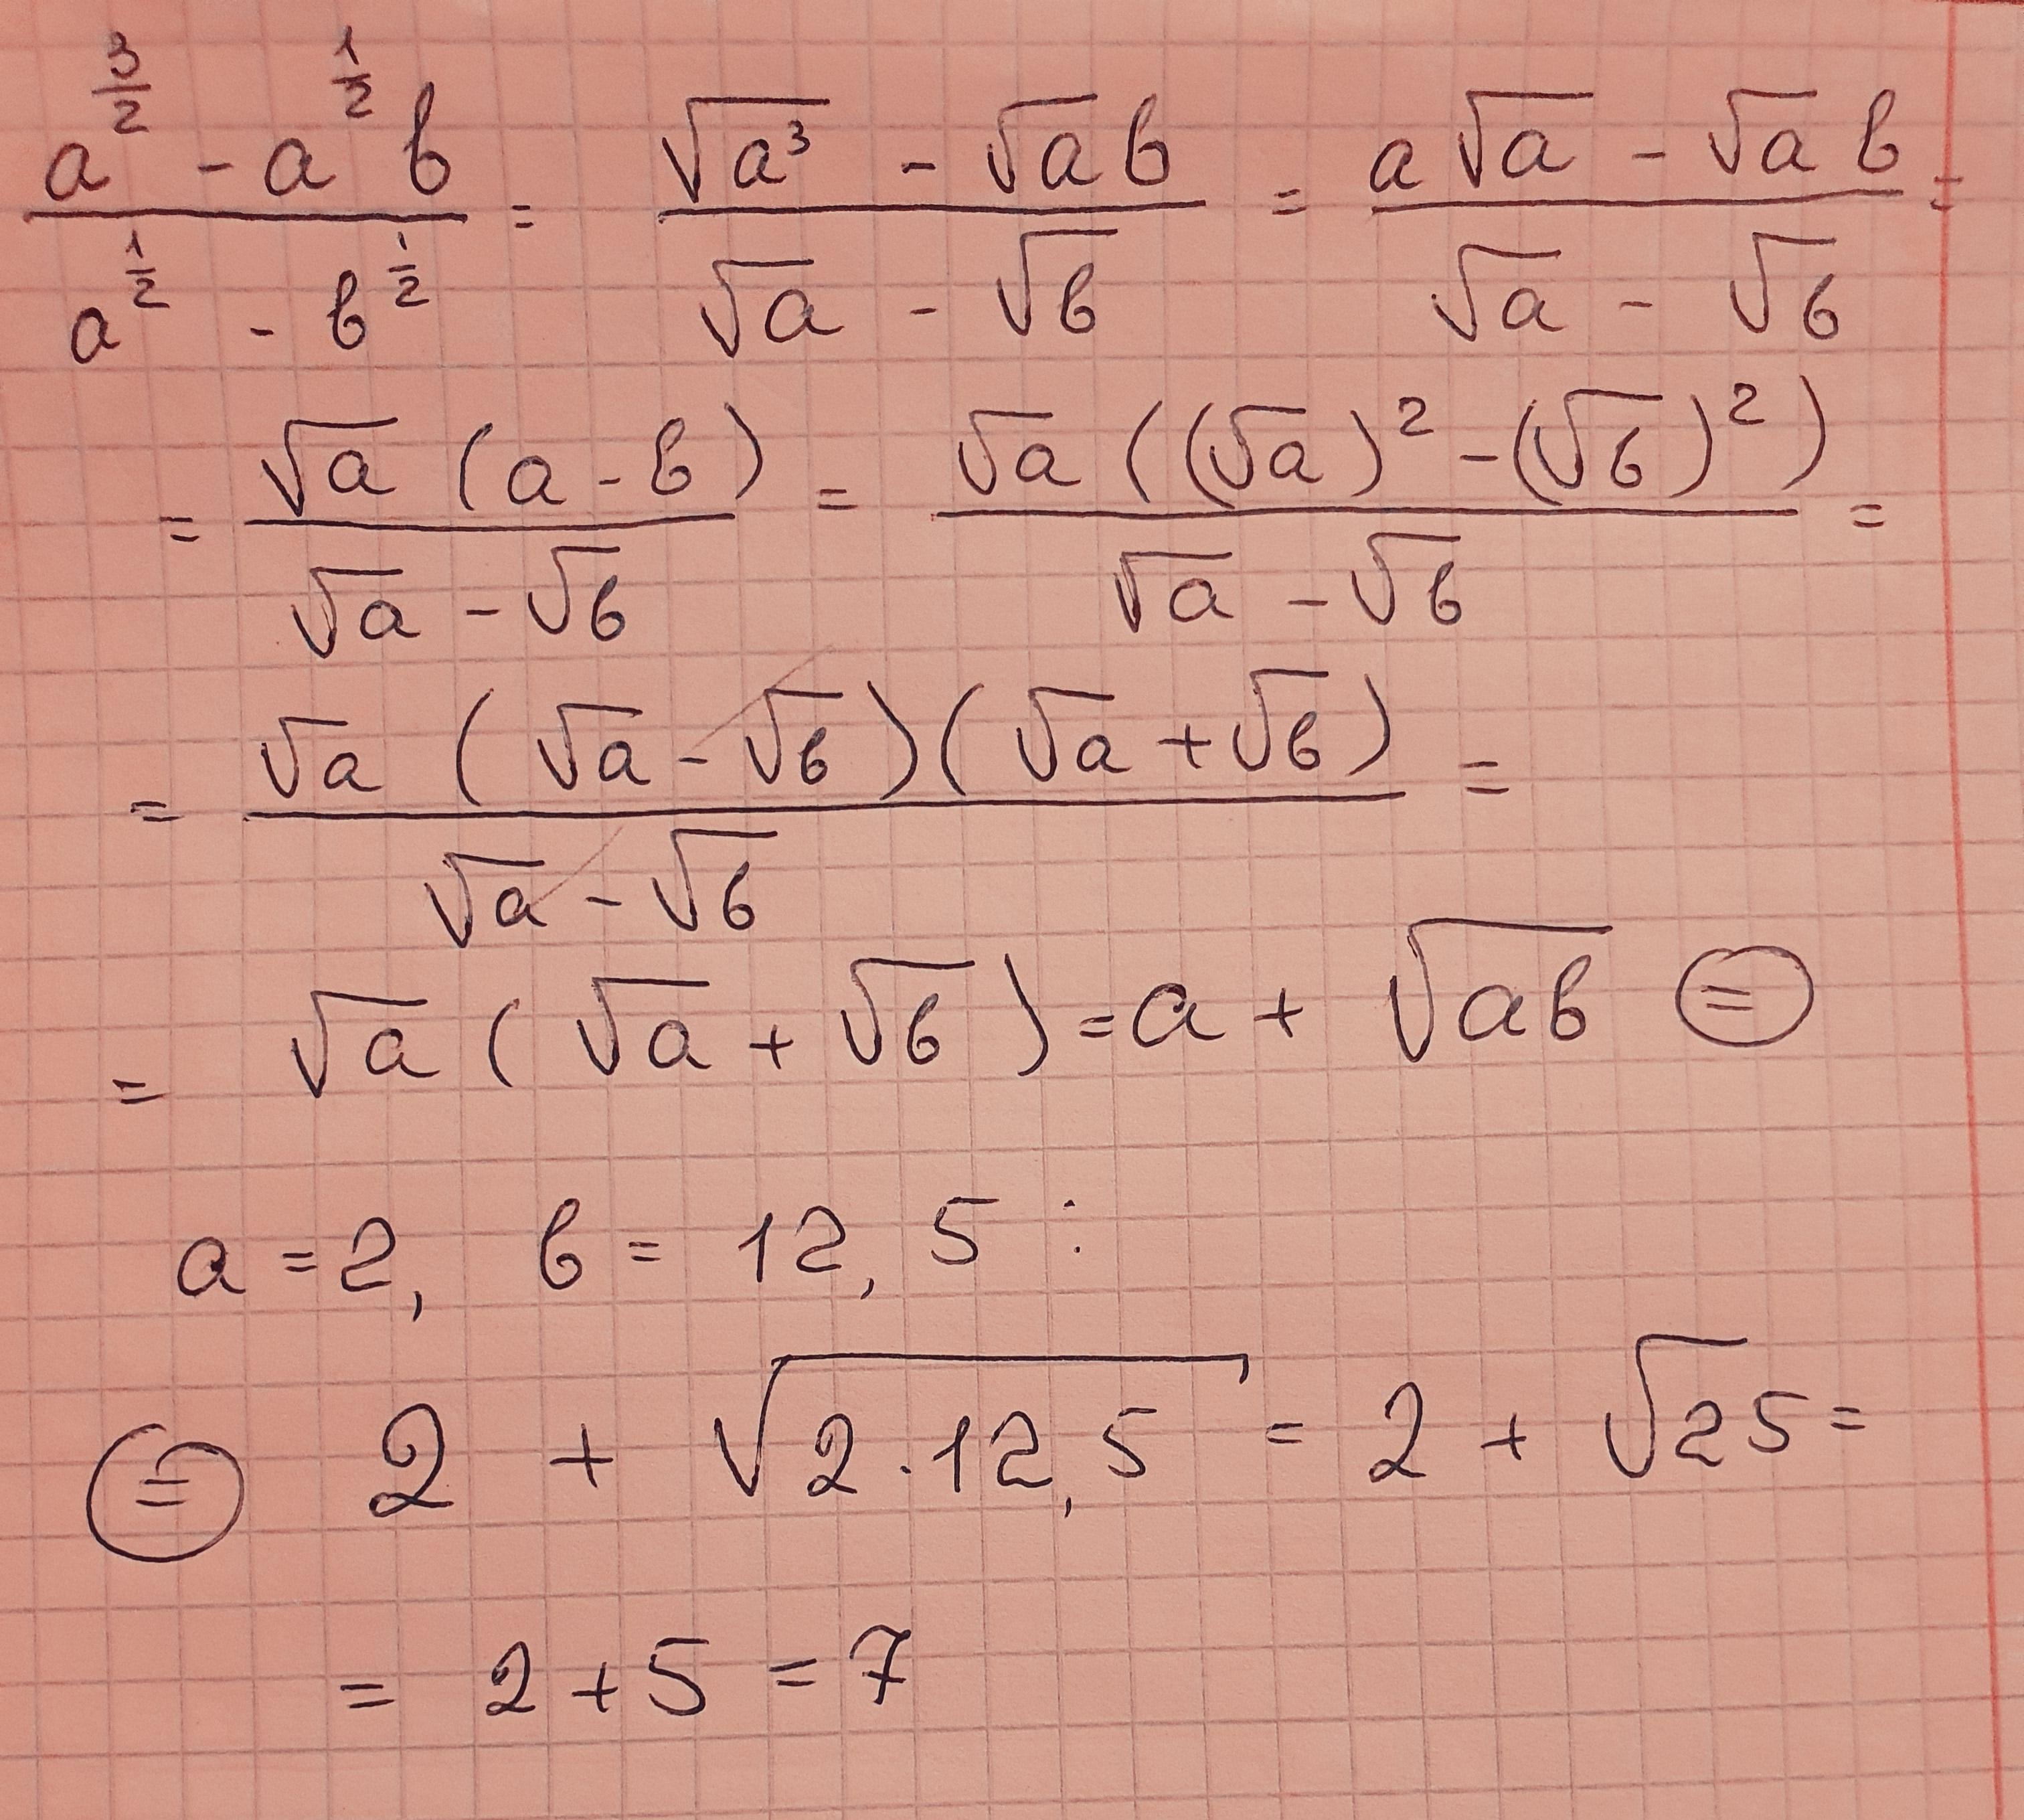 (a^(3/2) - a^(1/2) b) / (a^(1/2) - b^(1/2)) = (√(a³) - √a b) / (√a - √b) = (a√a - √a b) / (√a - √b) =
= (√a (a - b)) / (√a - √b) = (√a ((√a)² - (√b)²)) / (√a - √b) =
= (√a (√a - √b)(√a + √b)) / (√a - √b) =
= √a (√a + √b) = a + √(ab) ⊜
a = 2, b = 12,5 :
⊜ 2 + √(2 · 12,5) = 2 + √25 =
= 2 + 5 = 7